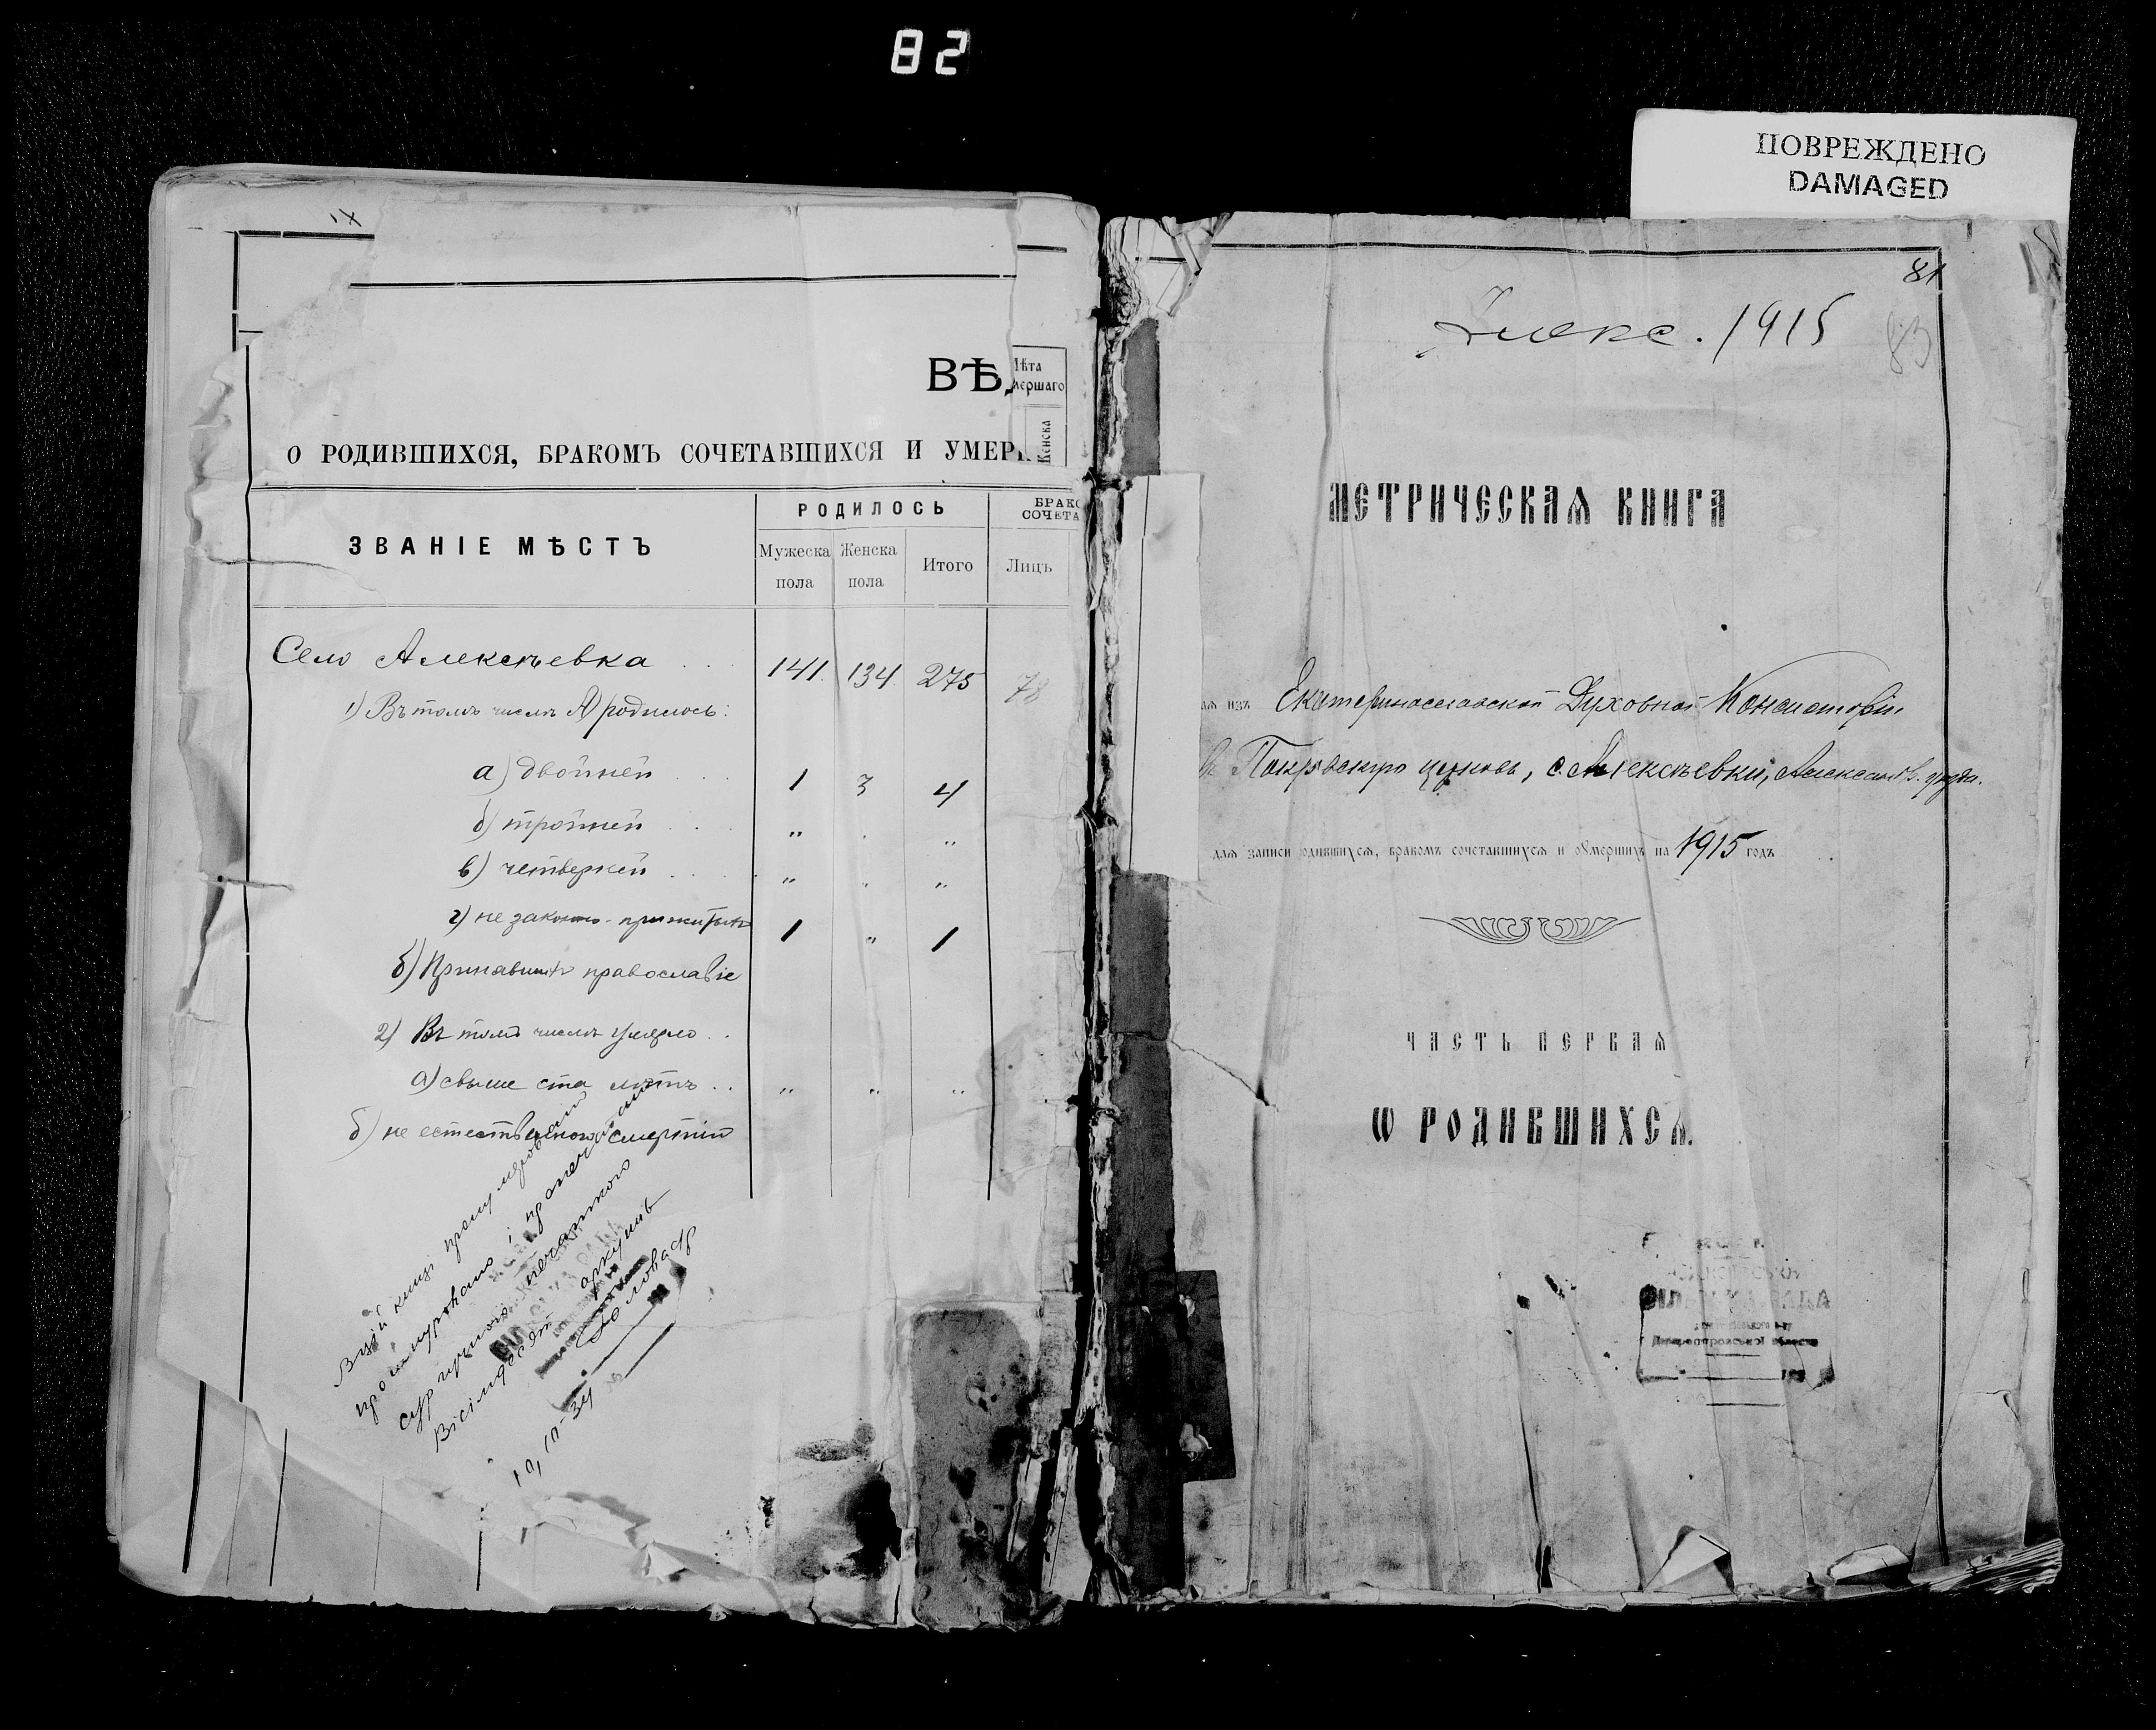 82
ПОВРЕЖДЕНО
DAMAGED
ВѢ
Лѣта
мершаго
Женска
О РОДИВШИХСЯ, БРАКОМЪ СОЧЕТАВШИХСЯ И УМЕР
ЗВАНІЕ МѢСТЪ
РОДИЛОСЬ
БРАКО
СОЧЕТА
Мужеска пола
Женска пола
Итого
Лицъ
Село Алексѣевка . . 141. 134 275 78
1) Въ томъ числѣ А) родилось:
а) двойней . . 1 3 4
б) тройней . . " . "
в) четверней . . . " " "
г) не законно-прижитыхъ 1 " 1
б) Принявшихъ православіе
2) Въ томъ числѣ умерло . .
а) свыше ста лѣтъ . . " " "
б) не естественною смертію
В цій книзі прону
прошнуровано і
печаткою
Вісімдесят аркушів
Голова с/р
10/III-34
81
83
Алекс. 1915
МЕТРИЧЕСКАѦ КНИГА
аѧ изъ Екатеринославской Духовной Консисторіи
въ Покровскую церковь, с. Алексѣевки, Александр. уѣзда.
длѧ записи родившихсѧ, бракомъ сочетавшихсѧ и оумершихъ на 1915 годъ
ЧАСТЬ ПЕРВАѦ
Ѡ РОДИВШИХСѦ.
Дніпропетровської області